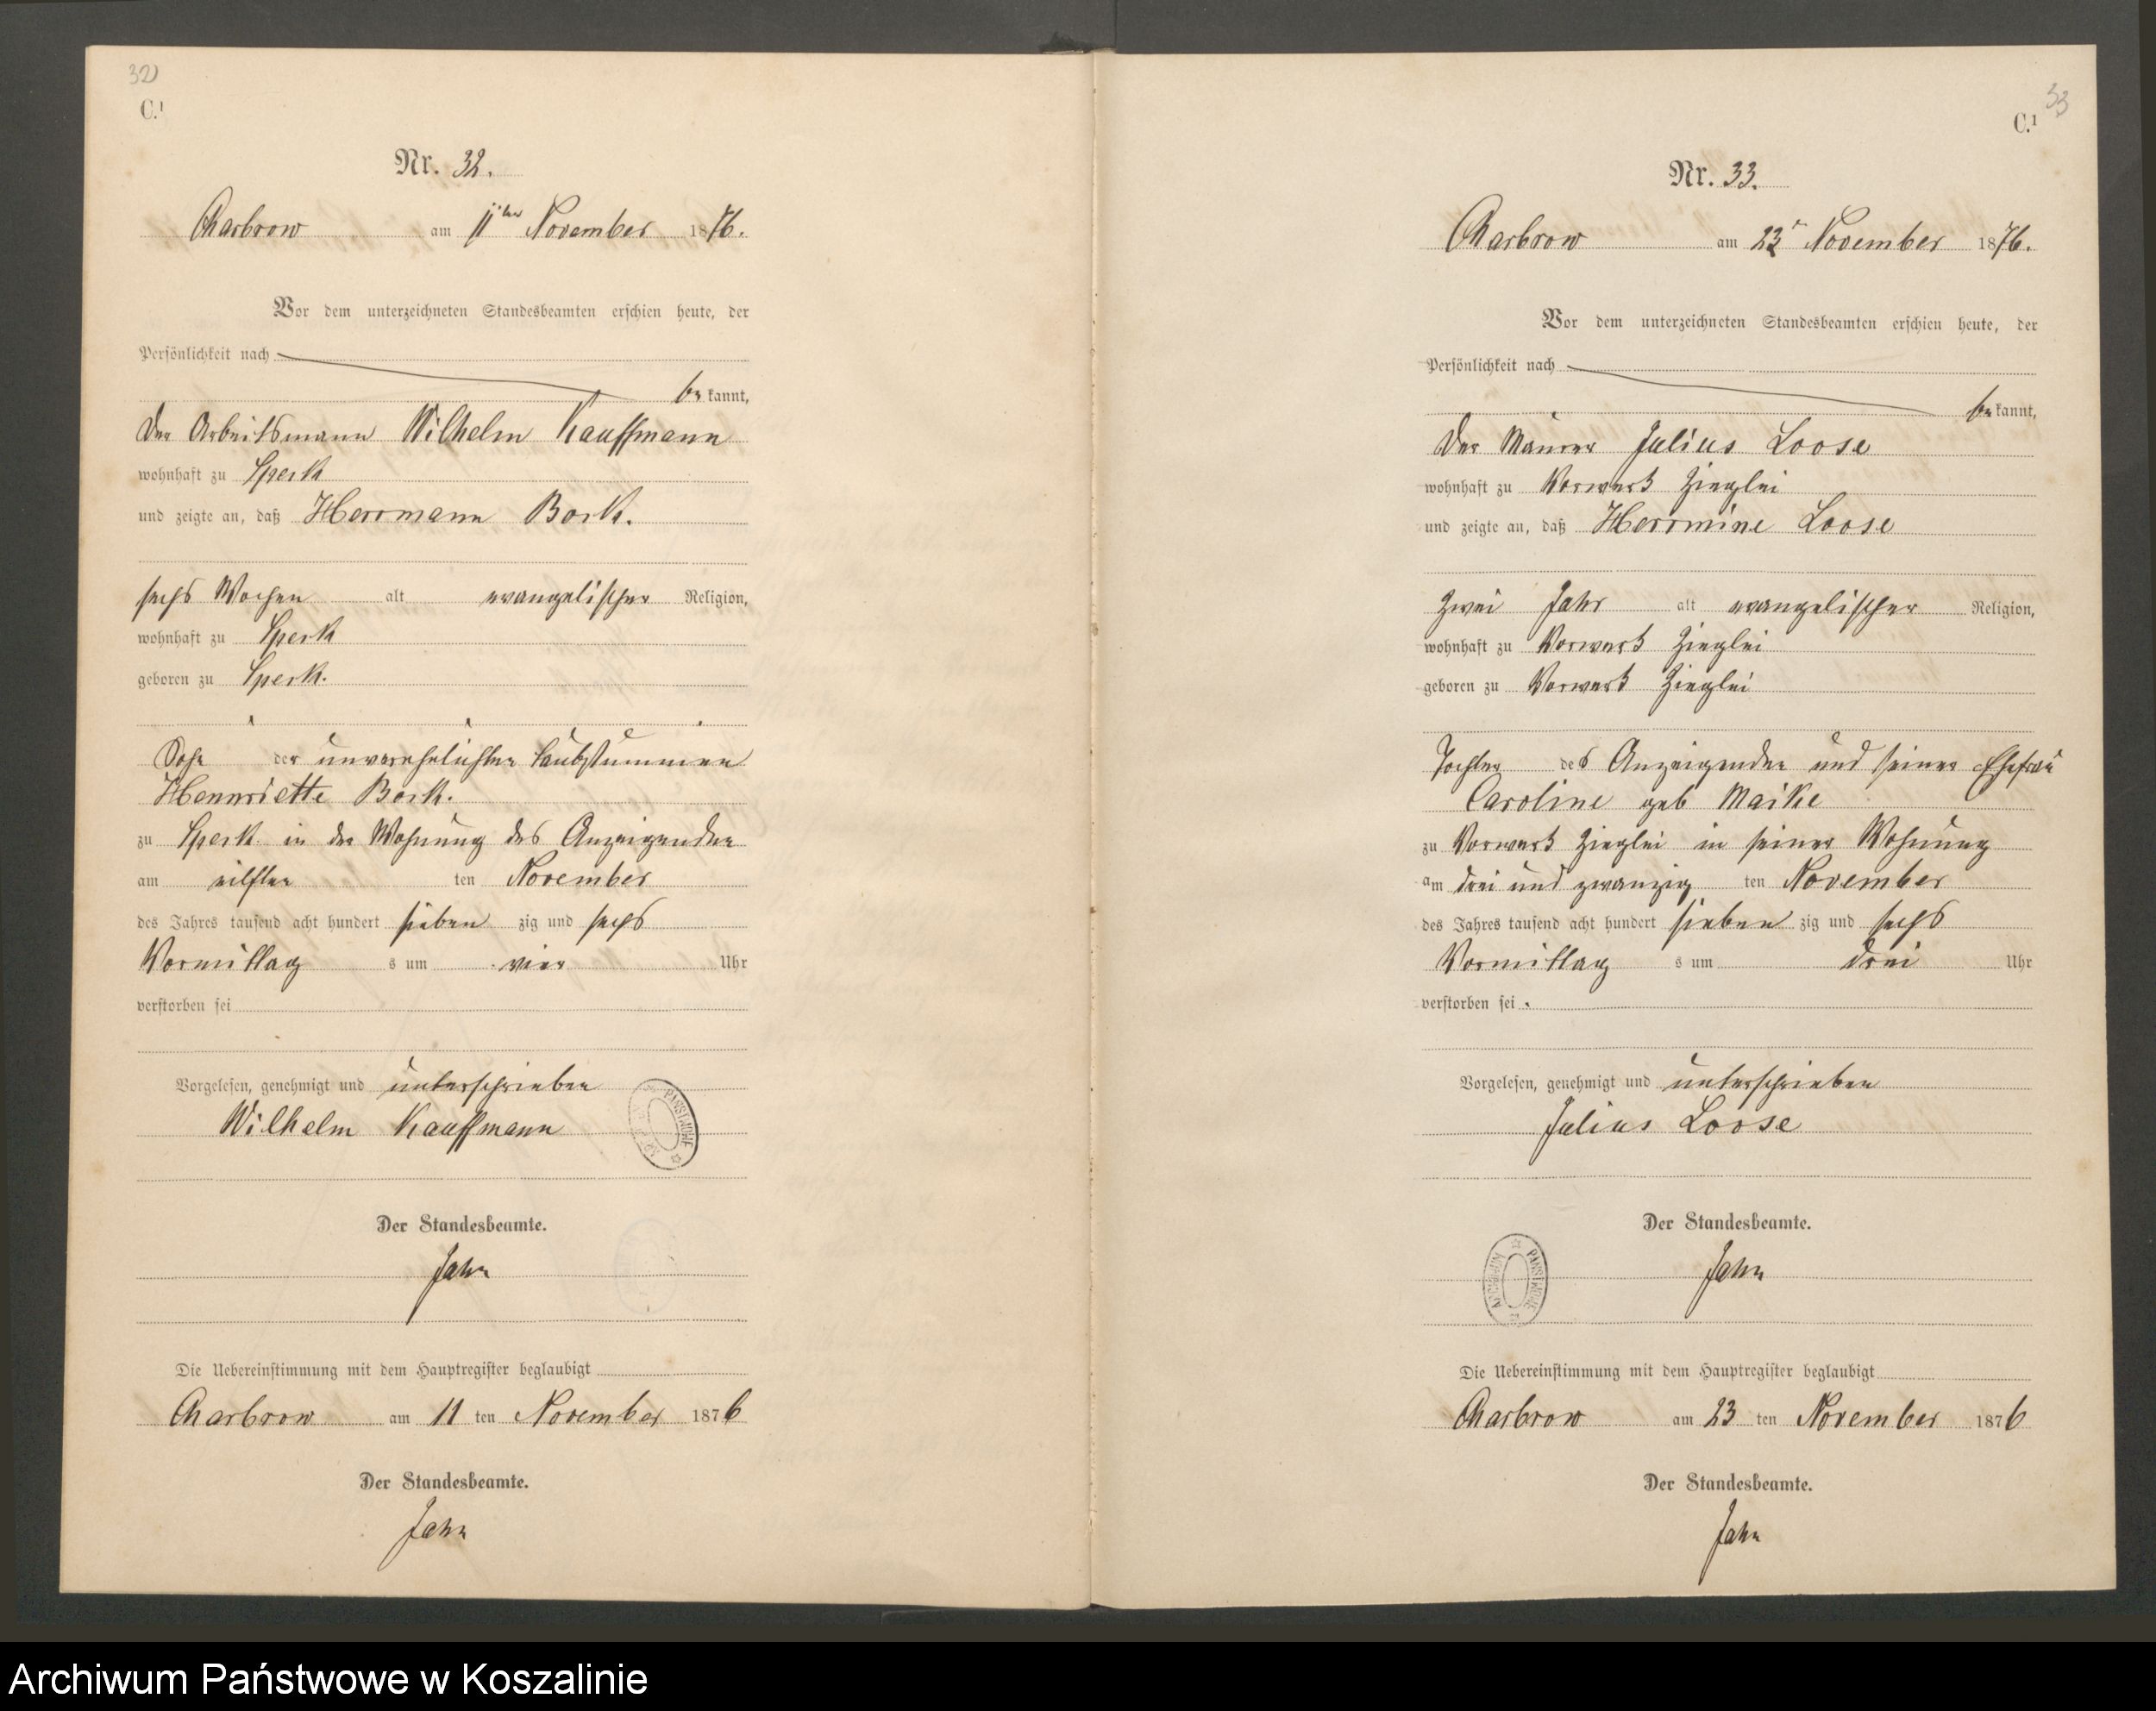 32
C.¹
Nr. 32.
Charbrow am 11ten November 1876.
Vor dem unterzeichneten Standesbeamten erschien heute, der
Persönlichkeit nach
be kannt,
der Arbeitsmann Wilhelm Kauffmann
wohnhaft zu Speck
und zeigte an, daß Herrmann Bork.
sechs Wochen alt evangelischer Religion,
wohnhaft zu Speck
geboren zu Speck.
Sohn der unverehelichten taubstummen
Hennriette Bork.
zu Speck in der Wohnung des Anzeigenden
am eilften ten November
des Jahres tausend acht hundert sieben zig und sechs
Vormittag s um vier Uhr
verstorben sei
Vorgelesen, genehmigt und unterschrieben
Wilhelm Kauffmann
Der Standesbeamte.
Jahn
Die Uebereinstimmung mit dem Hauptregister beglaubigt
Charbrow am 11 ten November 1876
Der Standesbeamte.
Jahn
33
C.¹
Nr. 33.
Charbrow am 23 November 1876.
Vor dem unterzeichneten Standesbeamten erschien heute, der
Persönlichkeit nach
be kannt,
der Maurer Julius Loose
wohnhaft zu Vorwerk Zieglei
und zeigte an, daß Herrmine Loose
zwei Jahr alt evangelischer Religion,
wohnhaft zu Vorwerk Zieglei
geboren zu Vorwerk Zieglei
Tochter des Anzeigenden und seiner Ehefrau
Caroline geb Maike
zu Vorwerk Zieglei in seiner Wohnung
am drei und zwanzig ten November
des Jahres tausend acht hundert sieben zig und sechs
Vormittag s um drei Uhr
verstorben sei.
Vorgelesen, genehmigt und unterschrieben
Julius Loose
Der Standesbeamte.
Jahn
Die Uebereinstimmung mit dem Hauptregister beglaubigt
Charbrow am 23 ten November 1876
Der Standesbeamte.
Jahn
Archiwum Państwowe w Koszalinie